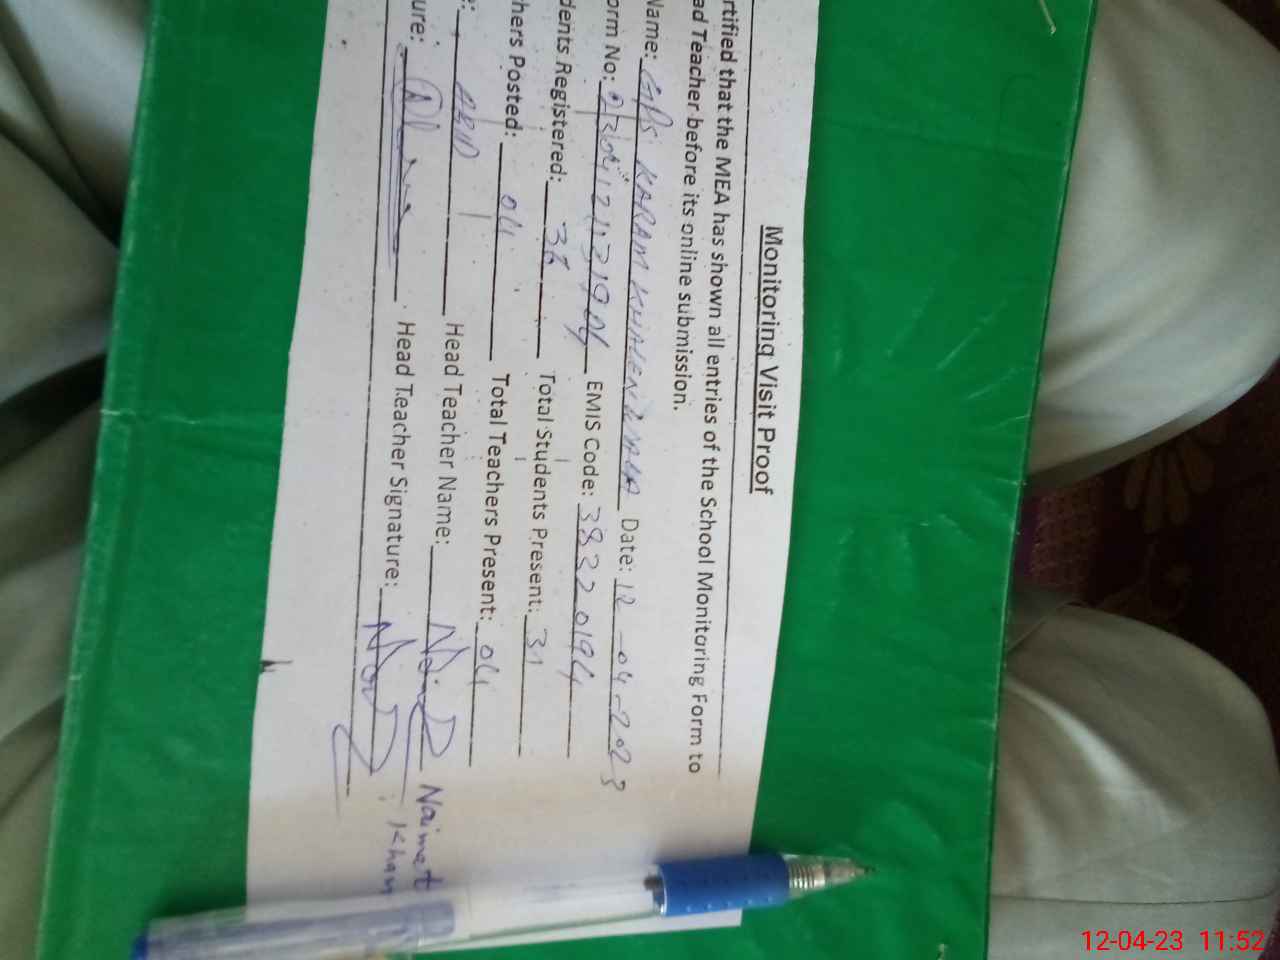 Monitoring Visit Proof
rtified that the MEA has shown all entries of the School Monitoring Form to
ad Teacher before its online submission.
Name: GPS KARAM Date: 12-04-2023
orm No: EMIS Code: 38320194
dents Registered: 36 Total Students Present: 31
hers Posted: 04 Total Teachers Present: 04
e: ABID Head Teacher Name: Naimat
ure: Head Teacher Signature: Khan
12-04-23 11:52